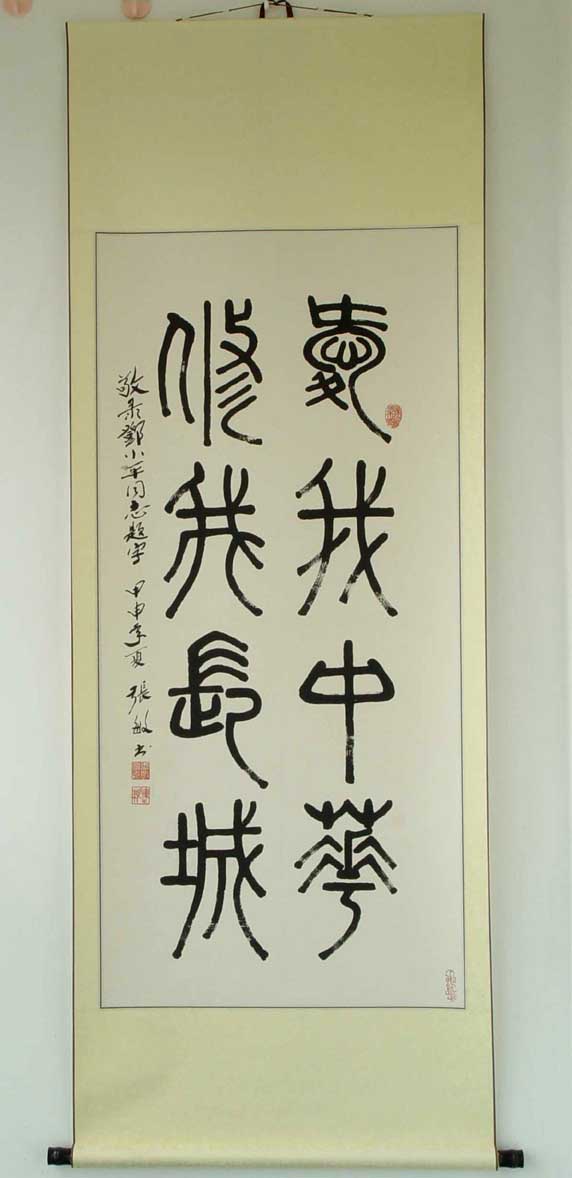 愛我中華
修我長城
敬录鄧小平同志題字 甲申季夏 張敏书